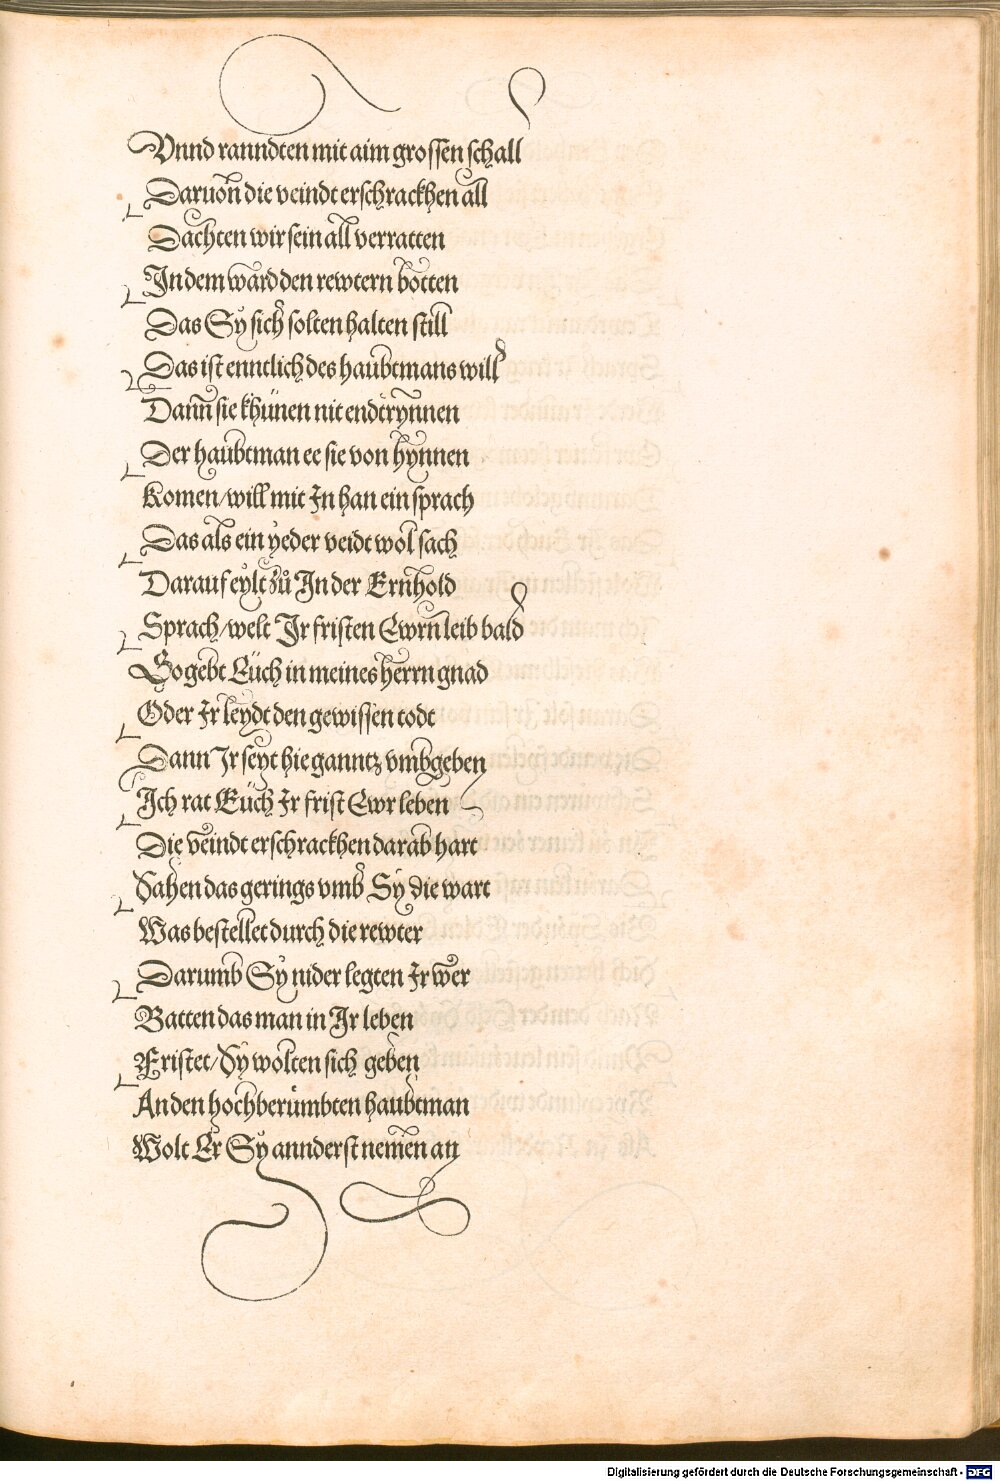 Vnnd ranndten mit aim grossen schall
Daruon die veindt erschrackhen all
Dachten wir sein all verratten
In dem ward den rewtern botten
Das Sy sich solten halten still
Das ist enntlich des haubtmans will
Dann sie khünen nit endtrynnen
Der haubtman ee sie von hynnen
Komen/will mit In han ein sprach
Das als ein yeder veidt wol sach
Darauf eylt zů In der Ernhold
Sprach/welt Ir fristen Ewrn leib bald
So gebt Eüch in meines herrn gnad
Oder Ir leydt den gewissen todt
Dann Ir seyt hie ganntz vmbgeben
Ich rat Eüch Ir frist Ewr leben
Die veindt erschrackhen darab hart
Sahen das gerings vmb Sy die wart
Was bestellet durch die rewter
Darumb Sy nider legten Ir wer
Batten das man in Ir leben
Fristet/Sy wolten sich geben
An den hochberümbten haubtman
Wolt Er Sy annderst nemen an
Digitalisierung gefördert durch die Deutsche Forschungsgemeinschaft - DFG